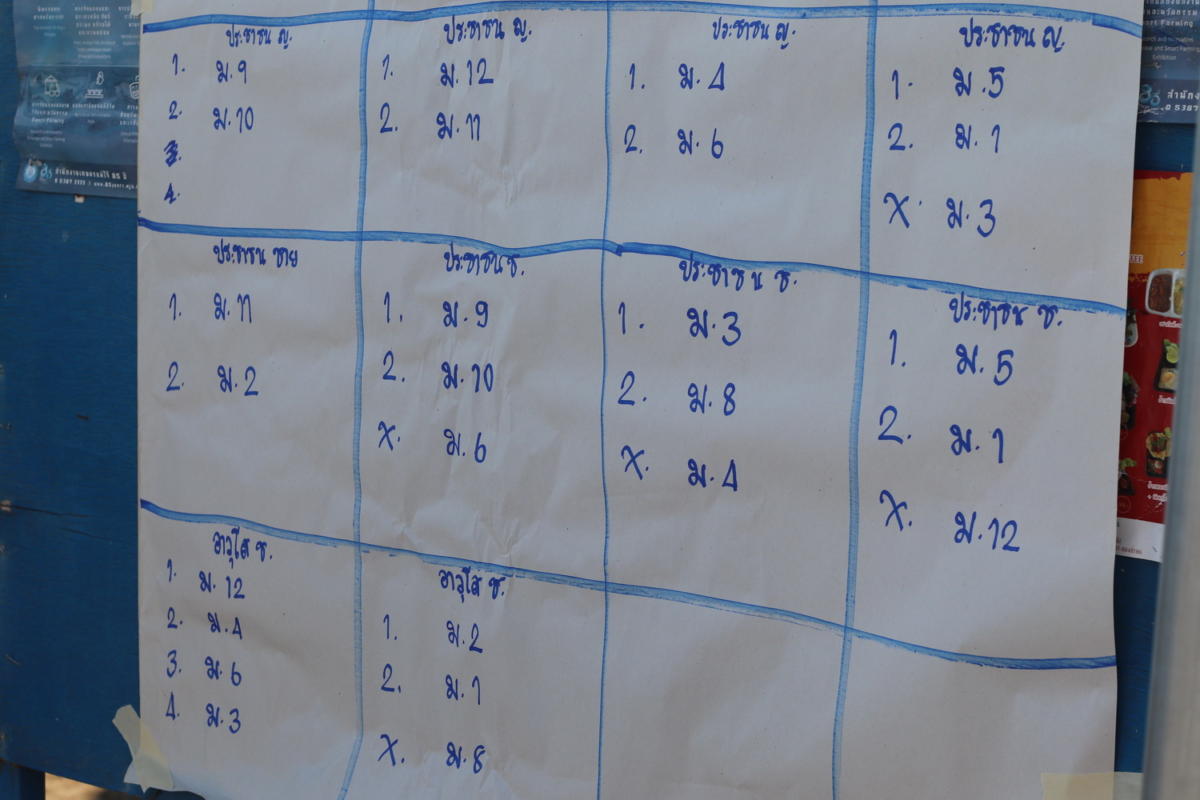 ประชาชน ญ.
1. ม.9
2. ม.10
3.
4.
ประชาชน ญ.
1. ม.12
2. ม.11
ประชาชน ญ.
1. ม.4
2. ม.6
ประชาชน ญ.
1. ม.5
2. ม.1
X. ม.3
ประชาชน ชาย
1. ม.11
2. ม.2
ประชาชน ช.
1. ม.9
2. ม.10
X. ม.6
ประชาชน ช.
1. ม.3
2. ม.8
X. ม.4
ประชาชน ช.
1. ม.5
2. ม.1
X. ม.12
อาวุโส ช.
1. ม.12
2. ม.4
3. ม.6
4. ม.3
อาวุโส ช.
1. ม.2
2. ม.1
X. ม.8